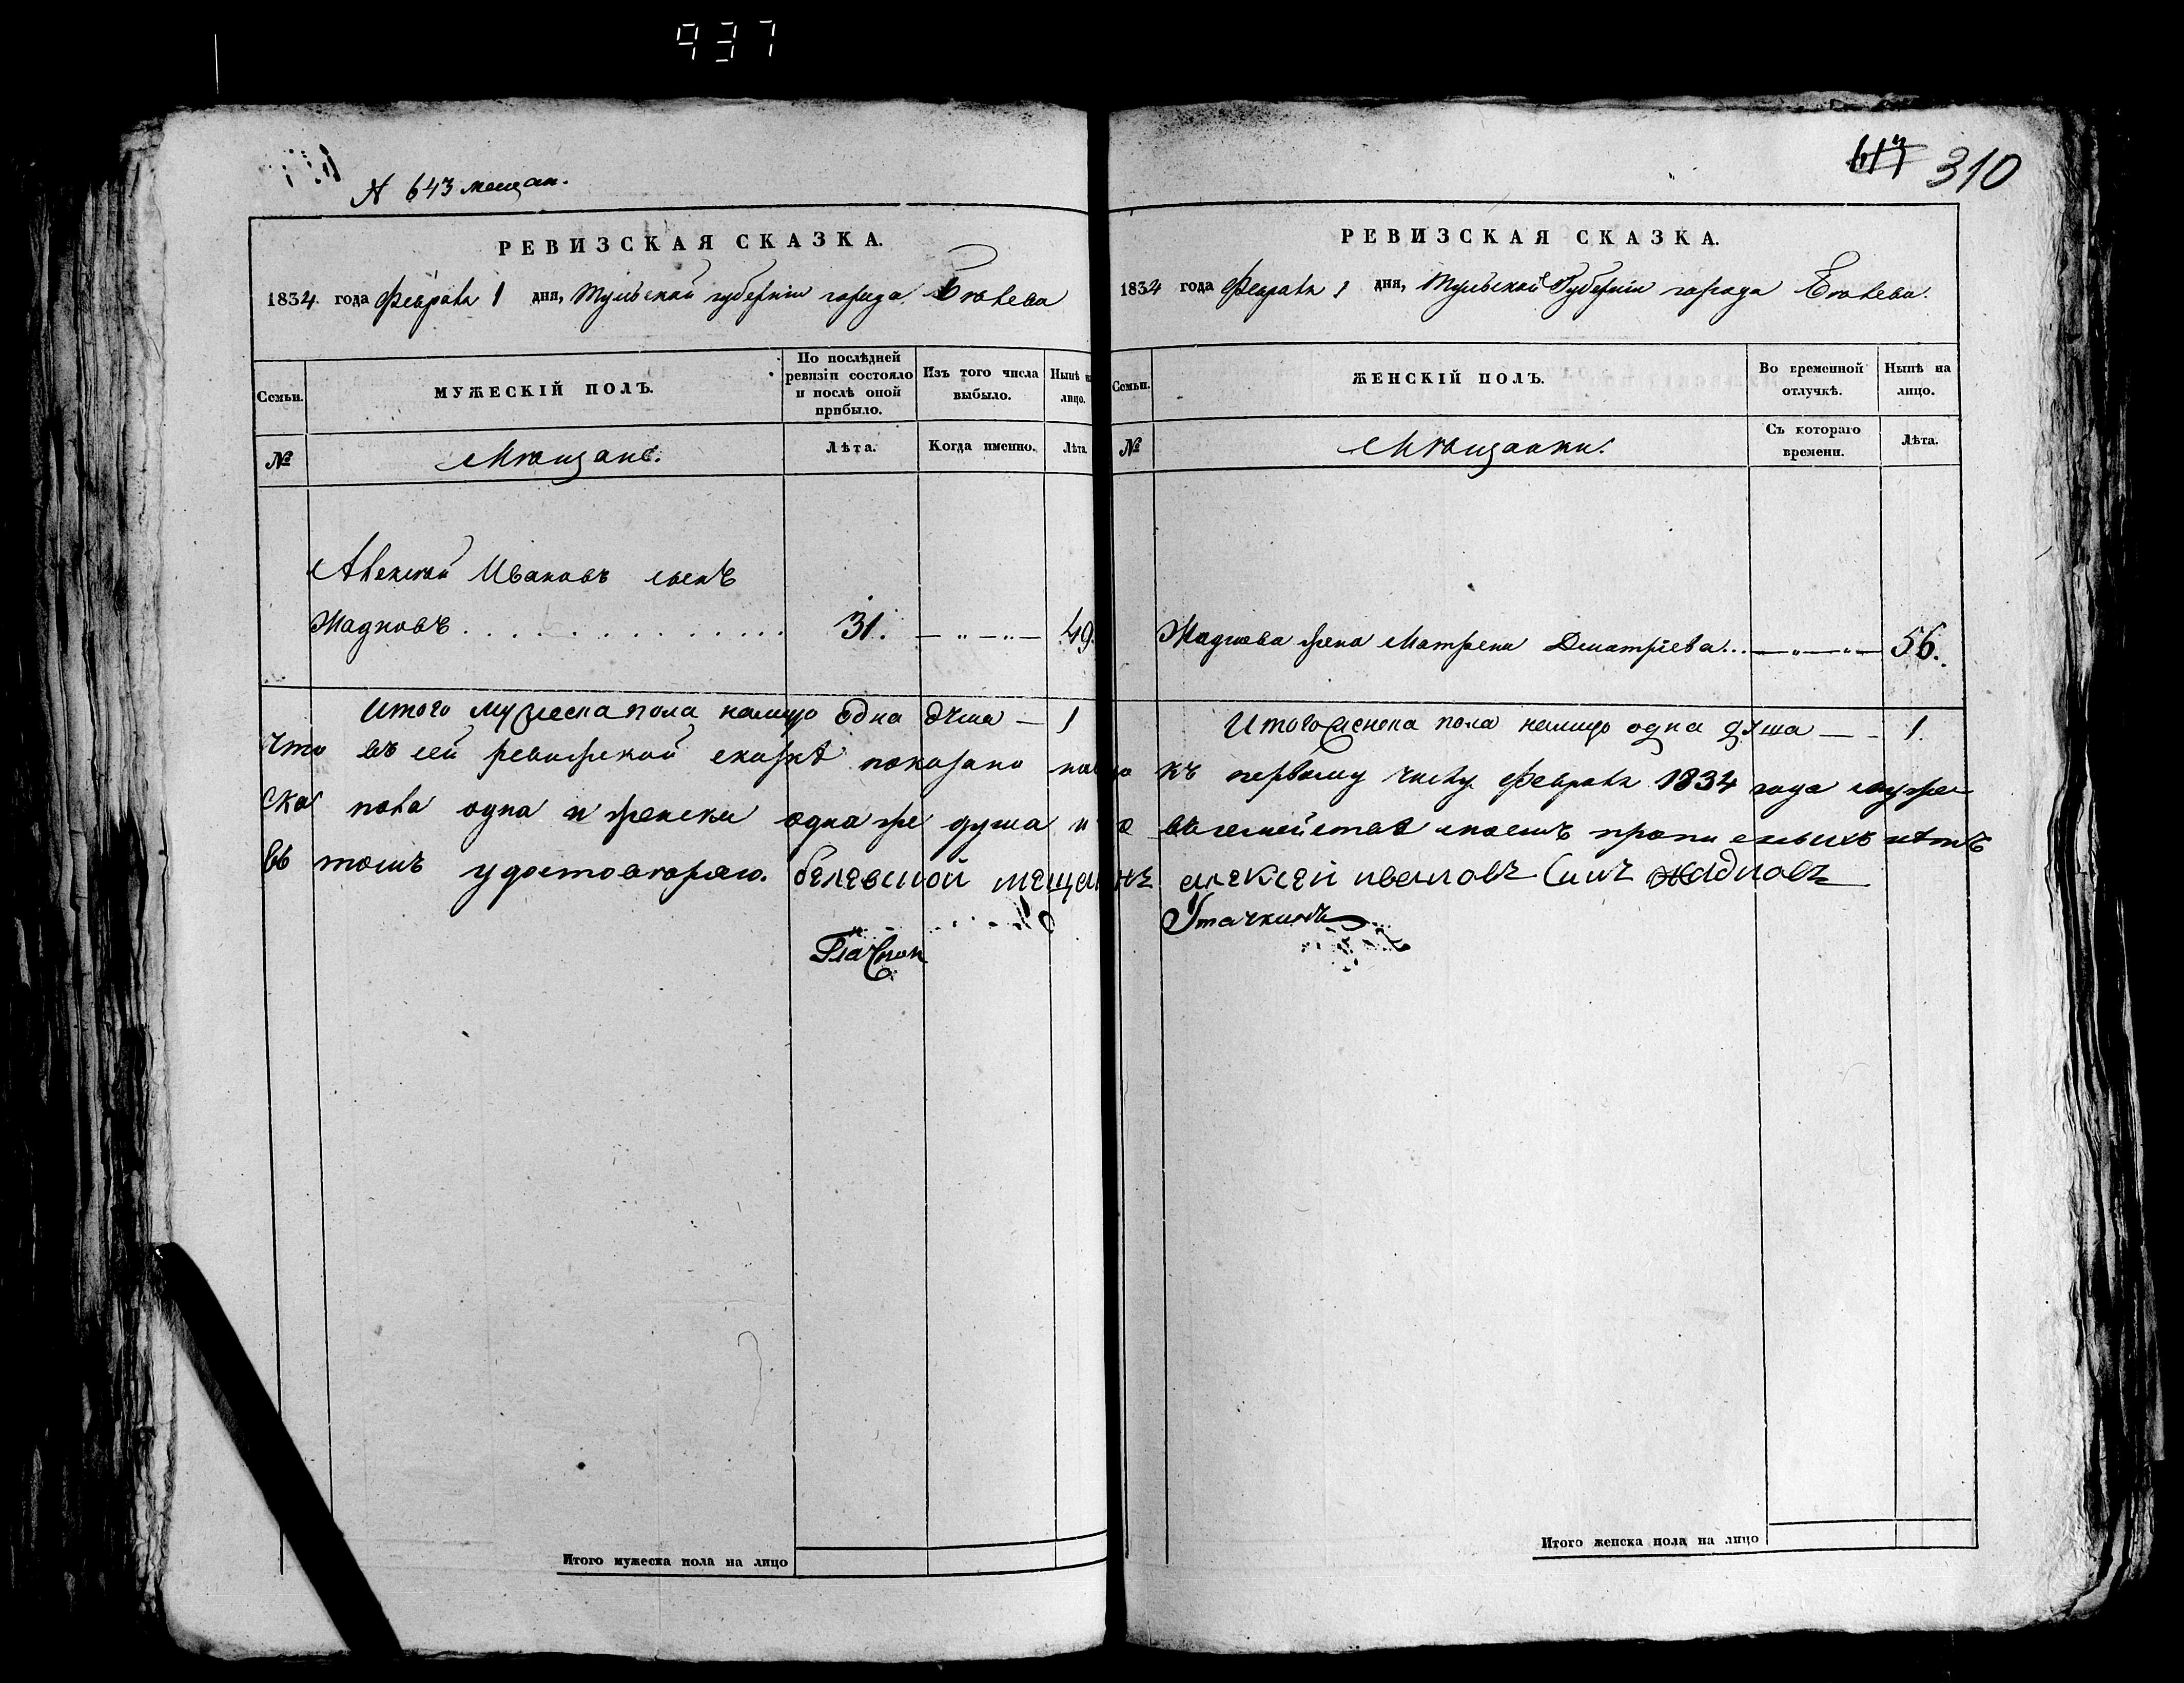 937
№ 643 мещан.
РЕВИЗСКАЯ СКАЗКА.
1834. года Февраля 1 дня, Тульской губерніи города Бѣлева
Семьи.
МУЖЕСКІЙ ПОЛЪ.
По послѣдней ревизіи состояло и послѣ оной прибыло.
Изъ того числа выбыло.
Нынѣ на лицо.
№
Мѣщане.
Лѣта.
Когда именно.
Лѣта.
Алексей Ивановъ сынъ
Жадновъ . . . . . . . . . . . . . . 31. — „ — „ — 49.
Итого мужеска пола налицо одна душа — 1
617 310
РЕВИЗСКАЯ СКАЗКА.
1834 года Февраля 1 дня, Тульской Губерніи города Бѣлева.
Семьи.
ЖЕНСКІЙ ПОЛЪ.
Во временной отлучкѣ.
Нынѣ на лицо.
№
Мѣщанки.
Съ котораго времени.
Лѣта.
Жаднова жена Матрена Дмитріева . . — „ — „ — 56.
Итого женска пола налицо одна душа — - 1.
Что въ сей ревизской сказкѣ показано налицо къ первому числу Февраля 1834 года муже
ска пола одна и женска одна же душа и что въ семействѣ моемъ прописныхъ нѣтъ
въ томъ удостовѣряю. белевской мещанинъ алексей ивановъ синъ жадновъ
Гласной
Итого мужеска пола на лицо
Итого женска пола на лицо